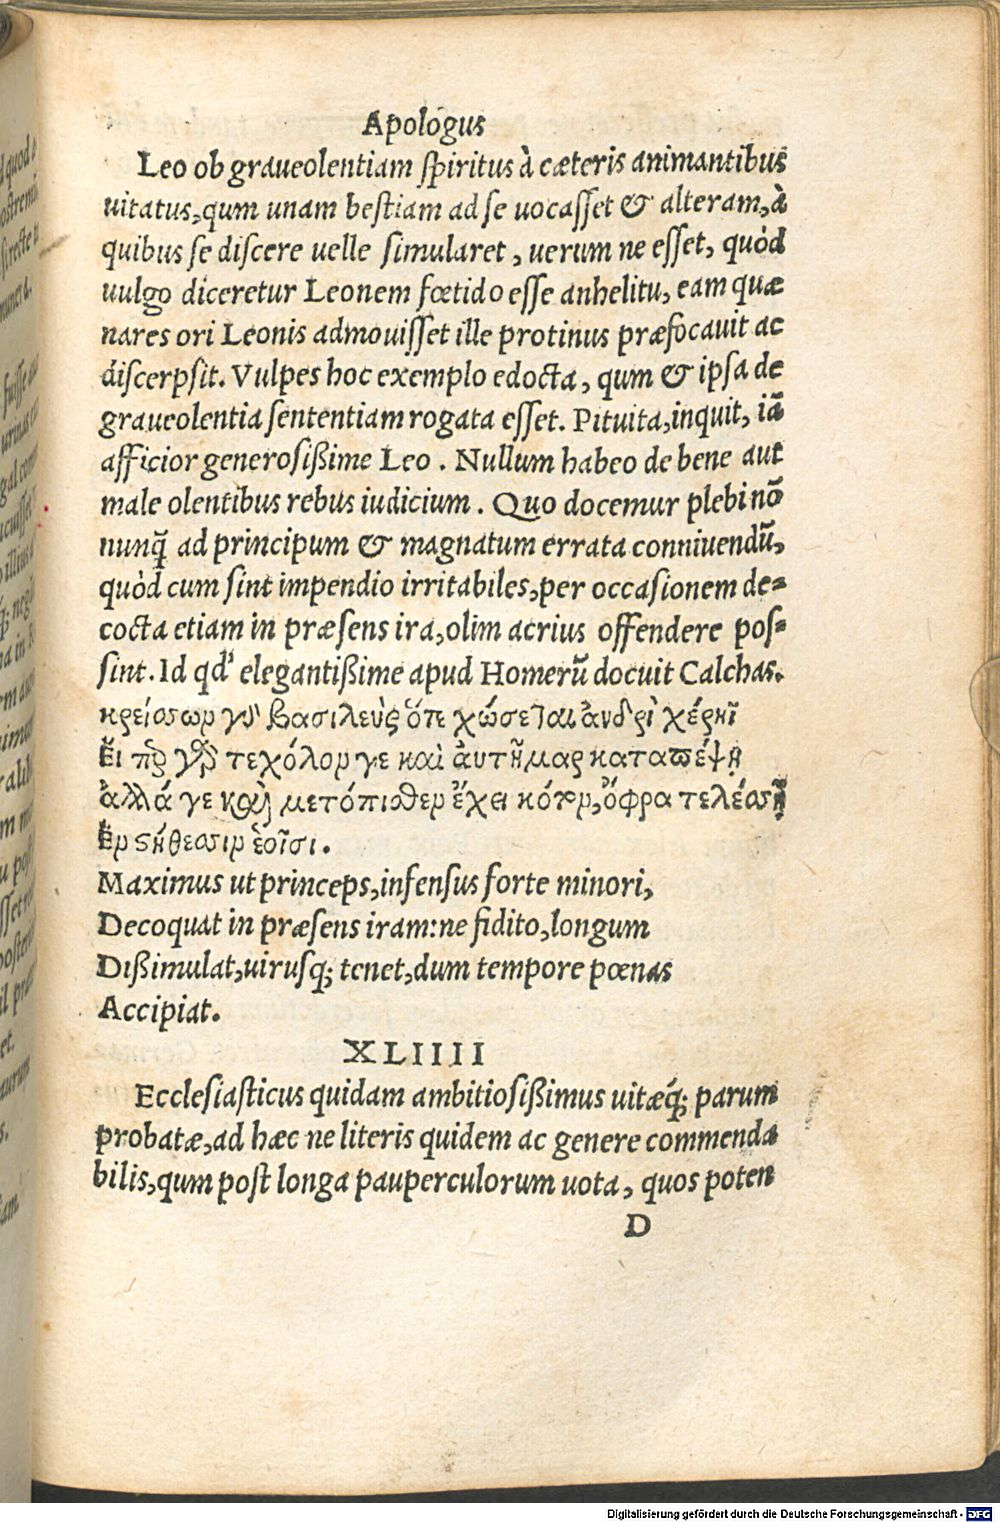 Apologus
Leo ob graueolentiam spiritus à cæteris animantibus
uitatus, qum unam bestiam ad se uocasset & alteram, à
quibus se discere uelle simularet, uerum ne esset, quòd
uulgo diceretur Leonem fœtido esse anhelitu, eam quæ
nares ori Leonis admouisset ille protinus præfocauit ac
discerpsit. Vulpes hoc exemplo edocta, qum & ipsa de
graueolentia sententiam rogata esset. Pituita, inquit, iā
afficior generosißime Leo. Nullum habeo de bene aut
male olentibus rebus iudicium. Quo docemur plebi nō
nunq̃ ad principum & magnatum errata conniuendū,
quòd cum sint impendio irritabiles, per occasionem de=
cocta etiam in præsens ira, olim acrius offendere pos=
sint. Id qd' elegantißime apud Homerū docuit Calchas.
κρείσσων γὰρ βασιλεὺς ὅτε χώσεται ἀνδρὶ χέρηϊ
Εἴ περ γάρ τε χόλον γε καὶ ἀυτῆμαρ καταπέψῃ
ἀλλά γε καὶ μετόπισθεν ἔχει κότον, ὄφρα τελέσσῃ
Ἐν στήθεσσιν ἑοῖσι.
Maximus ut princeps, infensus forte minori,
Decoquat in præsens iram: ne fidito, longum
Dißimulat, uirusq; tenet, dum tempore pœnas
Accipiat.
XLIIII
Ecclesiasticus quidam ambitiosißimus uitæq́; parum
probatæ, ad hæc ne literis quidem ac genere commenda
bilis, qum post longa pauperculorum uota, quos poten
D
Digitalisierung gefördert durch die Deutsche Forschungsgemeinschaft - DFG